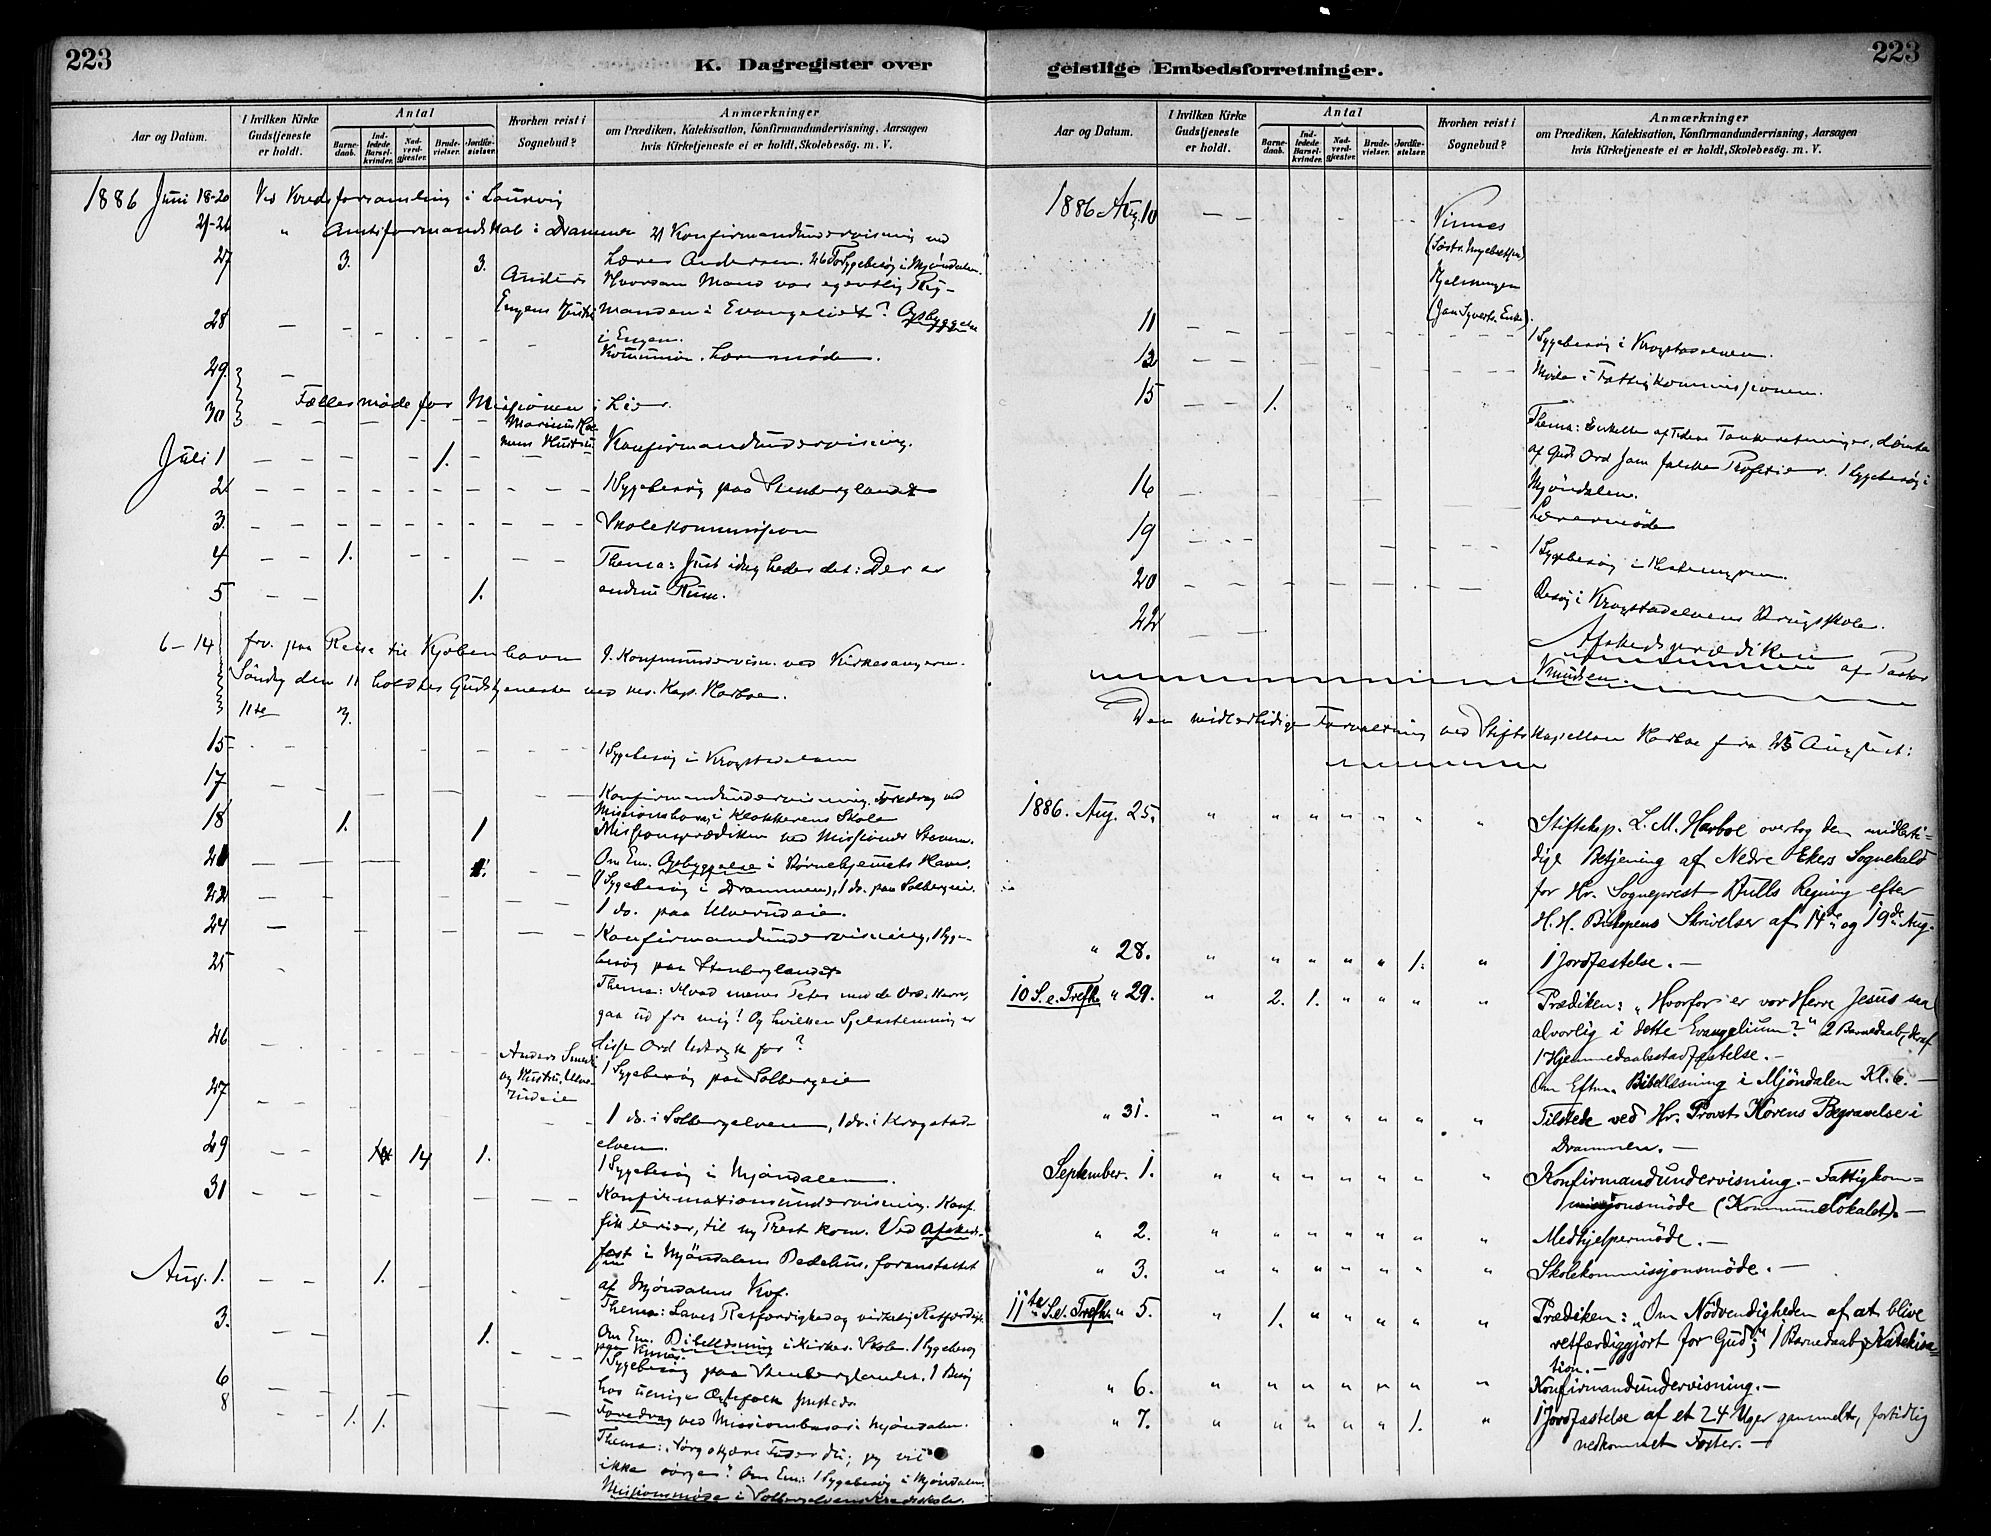 223
K. Dagregister over
Aar og Datum.
I hvilken Kirke Gudstjeneste er holdt.
Antal
Barnedaab.
Indledede Barselkvinder.
Nadverdgjester.
Brudevielser.
Jordfæstelser.
Hvorhen reist i Sognebud?
Anmærkninger
om Prædiken, Katekisation, Konfirmandundervisning, Aarsagen
hvis Kirketjeneste ei er holdt, Skolebesøg. m. V.
1886 Juni 18-20 Ved Kredsforsamling i Laurvig
21-26 " Amtsformandskab i Drammen Konfirmandundervisning ved
27 3. 3. Lærer Andersen. Sygebesøg i Mjøndalen.
Anders Hvorsan Mand var egentlig Rig-
Engens Hustru manden i Evangeliet? Opbyggelse
28 i Engen.
Kommun. Lærermøde.
29
30 Fællesmøde for Missionen i Lier.
Juli 1 1. Konfirmandundervisning.
2 1 Sygebesøg paa Stenberglandet
3. Skolekommission
4 1. Thema: Just idag heder det: Der er
5 1. endnu Rum.
6-14 frv. paa Reise til Kjøbenhavn Konfmundervisn. ved Kirkesangeren.
Søndag den 11 holdtes Gudstjeneste ved res. Kap. Harboe.
11te 3.
15 1 Sygebesøg i Krogstadelven
17 Konfirmandundervisning. Foredrag ved
18 1. 1 Missionsbasar i Klokkerens Skole
Missionsprædiken ved Missionær
21 1. Om Em. Opbyggelse i Børnehjemmets Have.
1 Sygebesøg i Drammen, 1 do. paa Solbergeie.
22 1 do. paa Ulverudeie.
24 Konfirmandundervisning, 1 Syge-
25 besøg paa Stenberglandet
Thema: Hvad mener Peter med de Ord: Herre,
gaa ud fra mig! Og hvilken Sjelsstemning er
26 disse Ord Udtryk for?
Anders
og Hustru, Ulve-
rudeie
1 Sygebesøg paa Solbergeie
27 1 do. i Solbergelven, 1 do. i Krogstad-
elven.
29 14 1. 1 Sygebesøg i Mjøndalen.
31 Konfirmationsundervisning. Konf.
fik Ferier, til ny Prest kom. Ved Afskeds-
fest i Mjøndalens Bedehus, foranstaltet
Aug. 1. 1. af Mjøndalens
Thema: Lovens Retfærdighed og virkelig Retfærdigh.
3. 1. Om Em. Bibellæsning i Kirkes. Skole. 1 Sygebesøg
1 Sygebesøg paa Stenberglandet. 1 Besøg
6 hos uenige Ægtefolk
8 1. 1. Foredrag ved Missionsbasar i Mjøndalen.
Thema: "Sørg o kjære Fader du, jeg vil
ikke sørge." Om Em: 1 Sygebesøg i Mjøndalen.
Missionsmøde i Solbergelvens Kredsskole.
223
geistlige Embedsforretninger.
Aar og Datum.
I hvilken Kirke Gudstjeneste er holdt.
Antal
Barnedaab.
Indledede Barselkvinder.
Nadverdgjester.
Brudevielser.
Jordfæstelser.
Hvorhen reist i Sognebud?
Anmærkninger
om Prædiken, Katekisation, Konfirmandundervisning, Aarsagen
hvis Kirketjeneste ei er holdt, Skolebesøg. m. V.
1886 Aug. 10 Vinnes
11 1 Sygebesøg i Krogstadelven.
12 Møde i Fattigkommissionen.
15 1. Thema: Enkelte af Tidens Tankeretninger, dømte
af Guds Ord som falske Profetier. 1 Sygebesøg i
16 Mjøndalen.
Lærermøde
19 1 Sygebesøg i
20 Besøg i Krogstadelvens Brugsskole.
22 Afskedsprædiken af Pastor
Knudsen.
Den midlertidige Forvaltning ved Stiftskapellan Harboe fra 25 August:
1886. Aug. 25. " " " " " " " Stiftskap. L. M. Harboe overtog den midlerti-
dige Betjening af Nedre Ekers Sognekald
for Hr. Sogneprest Bulls Regning efter
H. H. Biskopens Skrivelser af 14de og 19de Aug.
" 28. " " " " " 1. " 1 Jordfæstelse. -
10 S. e. Trefh. " 29. " 2. 1. " " " " Prædiken: "Hvorfor er vor Herre Jesus saa
alvorlig i dette Evangelium?" 2 Barnedaab, deraf
1 Hjemmedaabsstadfæstelse. -
Om Eftm. Bibellesning i Mjöndalen Kl. 6. -
" 31. " " " " " " " Tilstede ved Hr. Provst Korens Begravelse i
Drammen. -
September. 1. " " " " " " " Konfirmandundervisning. - Fattigkom-
missjonsmöde (Kommunelokalet). -
" 2. " " " " " " " Medhjelpermöde. -
" 3. " " " " " " " Skolekommissjonsmöde. -
11te S. e. Trefh. " 5. " 1. " " " " " Prædiken: "Om Nödvendigheden af at blive
retfærdiggjort for Gud;" 1 Barnedaab; Katekisa-
tion. -
" 6. " " " " " " " Konfirmandundervisning. -
" 7. " " " " " 1. " 1 Jordfæstelse af et 24 Uger gammelt, fortidlig
nedkommet Foster. -